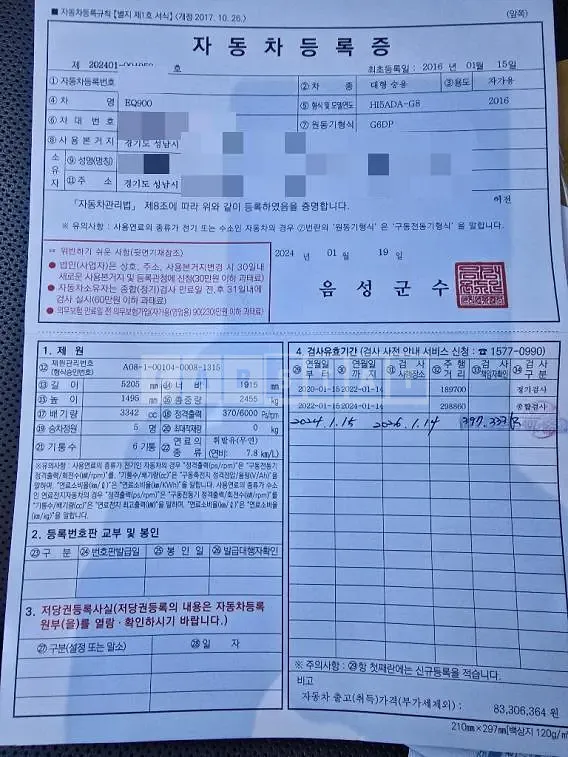 ■ 자동차등록규칙 [별지 제1호 서식] <개정 2017. 10. 26.> (앞쪽)
자동차등록증
제 202401- 호 최초등록일 : 2016 년 01월 15일
① 자동차등록번호 ② 차 종 대형 승용 ③용도 자가용
④ 차 명 EQ900 ⑤ 형식 및 모델연도 HI5ADA-G8 2016
⑥ 차대번호 ⑦ 원동기형식 G6DP
⑧ 사용본거지 경기도 성남시
소유자 ⑨ 성명(명칭)
⑪ 주 소 경기도 성남시
「자동차관리법」 제8조에 따라 위와 같이 등록하였음을 증명합니다.
※ 유의사항 : 사용연료의 종류가 전기 또는 수소인 자동차의 경우 ⑦번란의 '원동기형식' 은 '구동전동기형식' 을 말합니다.
위반하기 쉬운 사항(뒷면기재참조)
● 법인(사업자)은 상호, 주소, 사용본거지변경 시 30일내
새로운 사용본거지 및 등록관청에 신청(30만원 이하 과태료)
● 자동차소유자는 종합(정기)검사 만료일 전,후 31일내에
검사 실시(60만원 이하 과태료)
● 의무보험 만료일 전 의무보험가입(자가용(영업용) 90(230)만원 이하 과태료)
2024 년 01 월 19 일
음성군수
1. 제 원
⑫ 제원관리번호(형식승인번호) A08-1-00104-0008-1315
⑬ 길 이 5205 mm ⑭ 너 비 1915 mm
⑮ 높 이 1495 mm ⑯ 총중량 2455 kg
⑰ 배기량 3342 cc ⑱ 정격출력 370/6000 Ps/rpm
⑲ 승차정원 5 명 ⑳ 최대적재량 0 kg
㉑ 기통수 6 기통 ㉒ 연료의 종류 휘발유(무연) (연비: 7.8 km/L)
※유의사항 : 사용연료의 종류가 전기인 자동차의 경우 "정격출력(ps/rpm)"은 "구동전동기
정격출력/회전수(kW/rpm)"를, "기통수/배기량(cc)"은 "구동축전지 정격전압/용량(V/Ah)"을
말하며, "연료소비율(㎞/ℓ)"은 "연료소비율(㎞/KWh)"을 말합니다. 사용연료의 종류가 수소
인 연료전지자동차의 경우 "정격출력(ps/rpm)"은 "구동전동기 정격출력/회전수(kW/rpm)"를
"기통수/배기량(cc)"은 "연료전지 최고출력(kW)"을 말하며, "연료소비율(㎞/ℓ)"은 "연료소비율
(㎞/kg)"을 말합니다.
2. 등록번호판 교부 및 봉인
㉓ 구 분 ㉔ 번호판발급일 ㉕ 봉 인 일 ㉖ 발급대행자확인
3. 저당권등록사실(저당권등록의 내용은 자동차등록
원부(을)를 열람ㆍ확인하시기 바랍니다.)
㉗ 구분(설정 또는 말소) ㉘ 일 자
4. 검사유효기간 (검사 사전 안내 서비스 신청 : ☎ 1577-0990)
㉙ 연월일 부터 ㉚ 연월일 까지 ㉛ 검사 시행장소 ㉜ 주행거리 ㉝ 검사책임자확인 ㉞ 검사구분
2020-01-15 2022-01-14 189700 정기검사
2022-01-15 2024-01-14 298860 종합검사
2024.1.15 2026.1.14
※ 주의사항 : ㉙항 첫째란에는 신규등록일을 적습니다.
비고
자동차 출고(취득)가격(부가세제외) : 83,306,364 원
210㎜×297㎜[백상지 120g/㎡